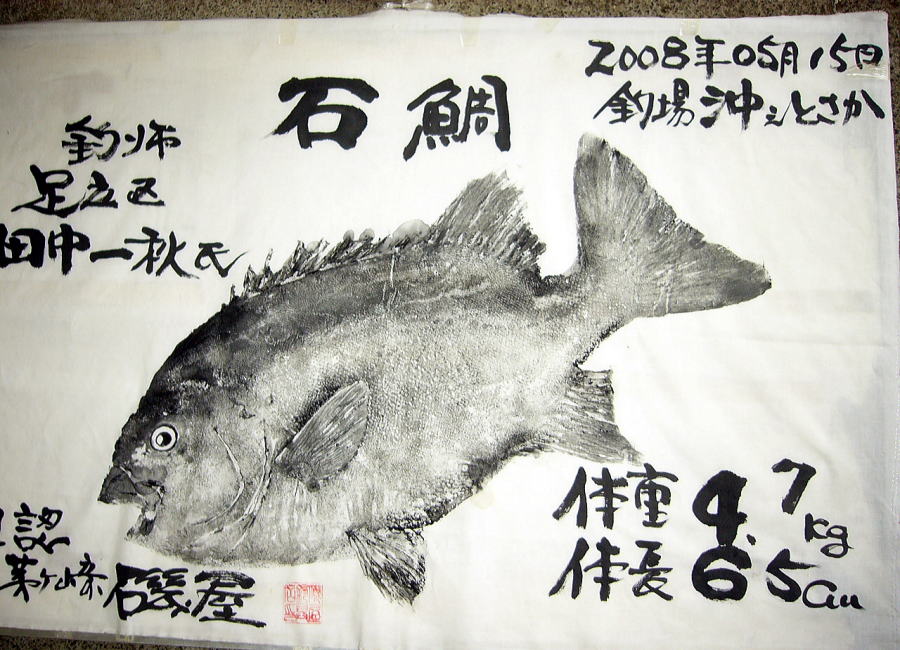 石鯛
2008年05月15日
釣場 沖ノえとさか
釣り師
足立区
田中一秋氏
体重 4.7kg
体長 65cm
認
茅ヶ崎
磯屋